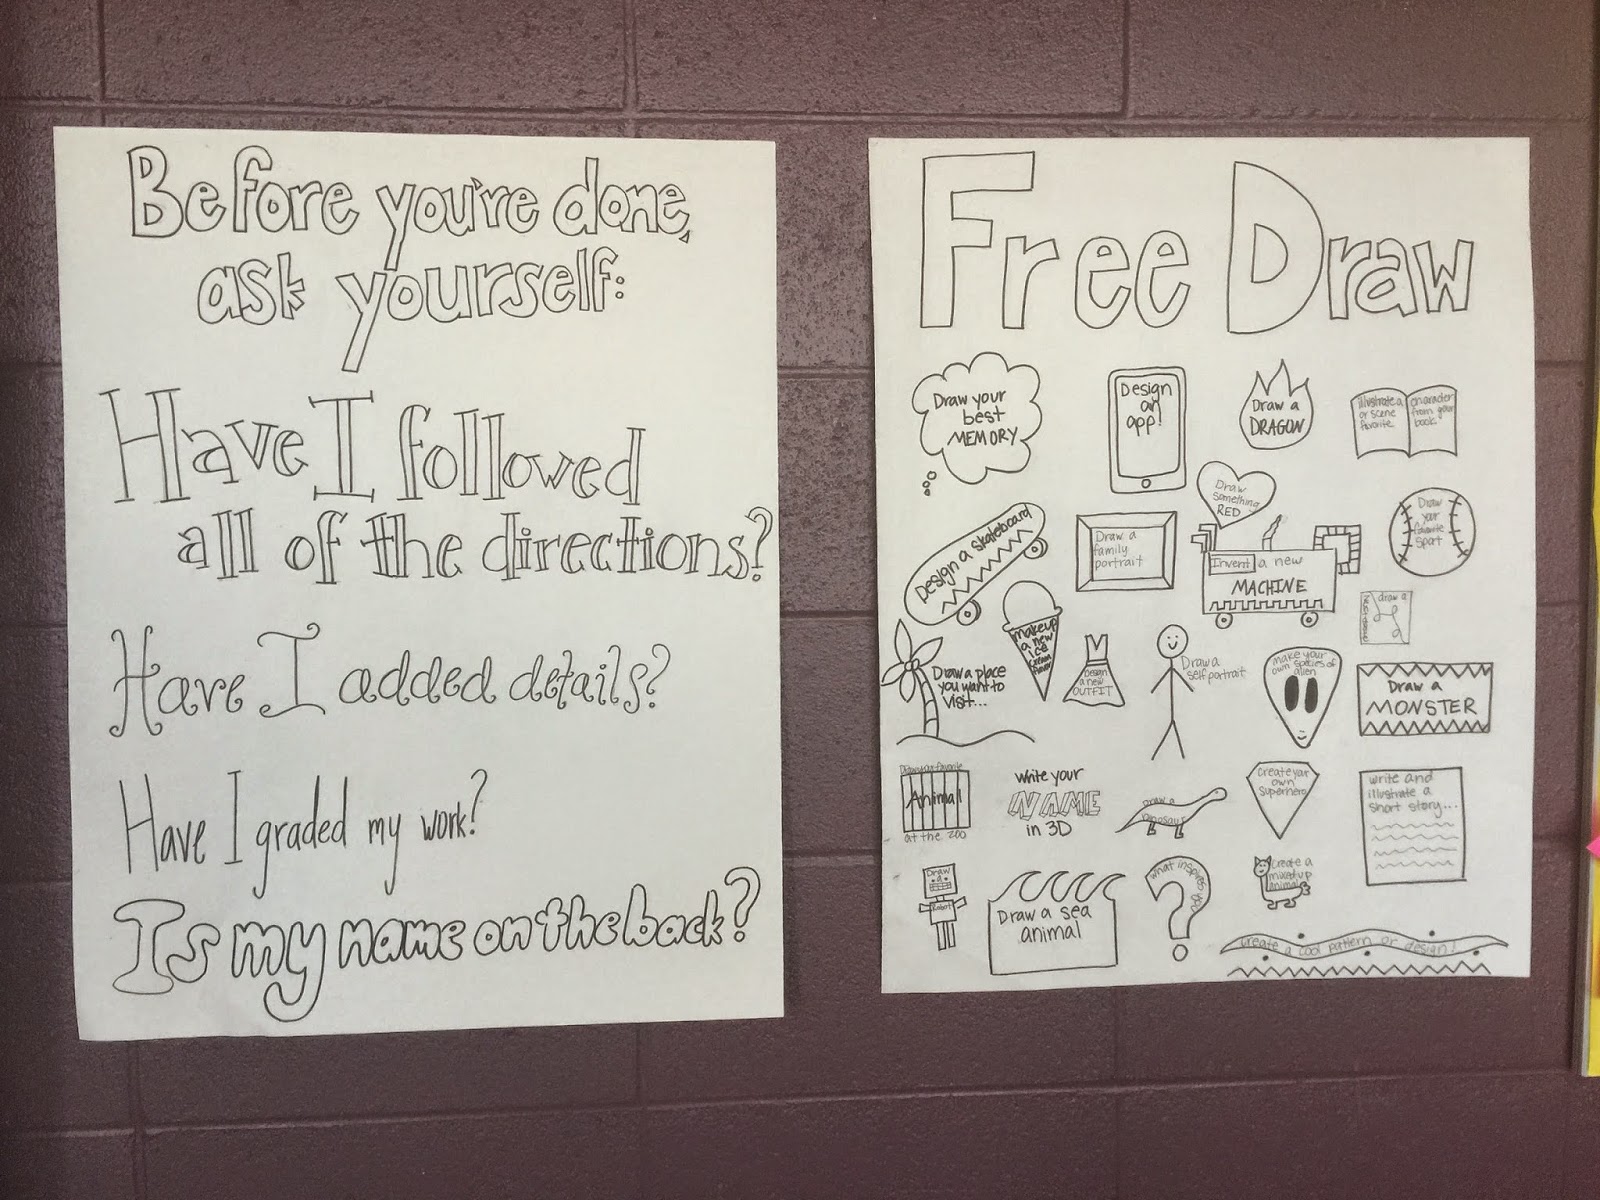 Before you're done,
ask yourself:
Have I followed
all of the directions?
Have I added details?
Have I graded my work?
Is my name on the back?
Free Draw
Draw your
best
MEMORY
Design
an
app!
Draw a
DRAGON
illustrate a
or scene
favorite
character
from your
book
Draw
something
RED
Design a skateboard
Draw a
family
portrait
Invent a new
MACHINE
Draw
your
favorite
sport
draw a
Make up
a new
ice
cream
flavor
Draw a place
you want to
visit...
Design
a new
OUTFIT
Draw a
self portrait
make your
own species of
alien
Draw a
MONSTER
Draw your favorite
Animal
at the zoo
Write your
NAME
in 3D
Draw a
Dinosaur
Create your
own
Superhero
write and
illustrate a
short story...
Draw
a
Robot
Draw a sea
animal
what inspires you
create a
mixed up
animal
create a cool pattern or design!